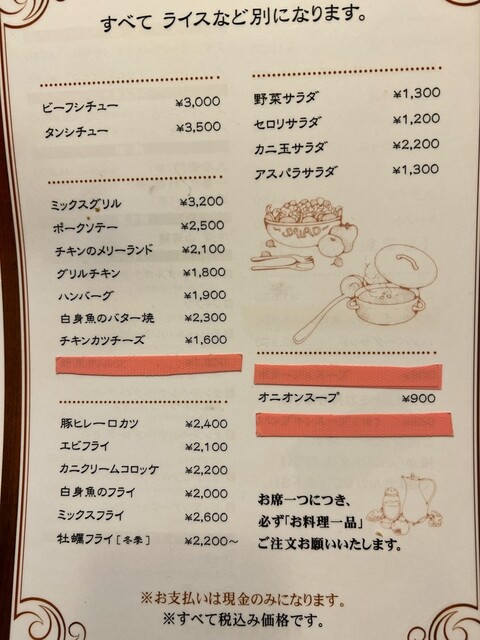 すべて ライスなど別になります。
ビーフシチュー ¥3,000
タンシチュー ¥3,500
ミックスグリル ¥3,200
ポークソテー ¥2,500
チキンのメリーランド ¥2,100
グリルチキン ¥1,800
ハンバーグ ¥1,900
白身魚のバター焼 ¥2,300
チキンカツチーズ ¥1,600
豚ヒレ一口カツ ¥2,400
エビフライ ¥2,100
カニクリームコロッケ ¥2,200
白身魚のフライ ¥2,000
ミックスフライ ¥2,600
牡蠣フライ［冬季］ ¥2,200～
野菜サラダ ¥1,300
セロリサラダ ¥1,200
カニ玉サラダ ¥2,200
アスパラサラダ ¥1,300
SALAD
オニオンスープ ¥900
お席一つにつき、
必ず「お料理一品」
ご注文お願いいたします。
※お支払いは現金のみになります。
※すべて税込み価格です。